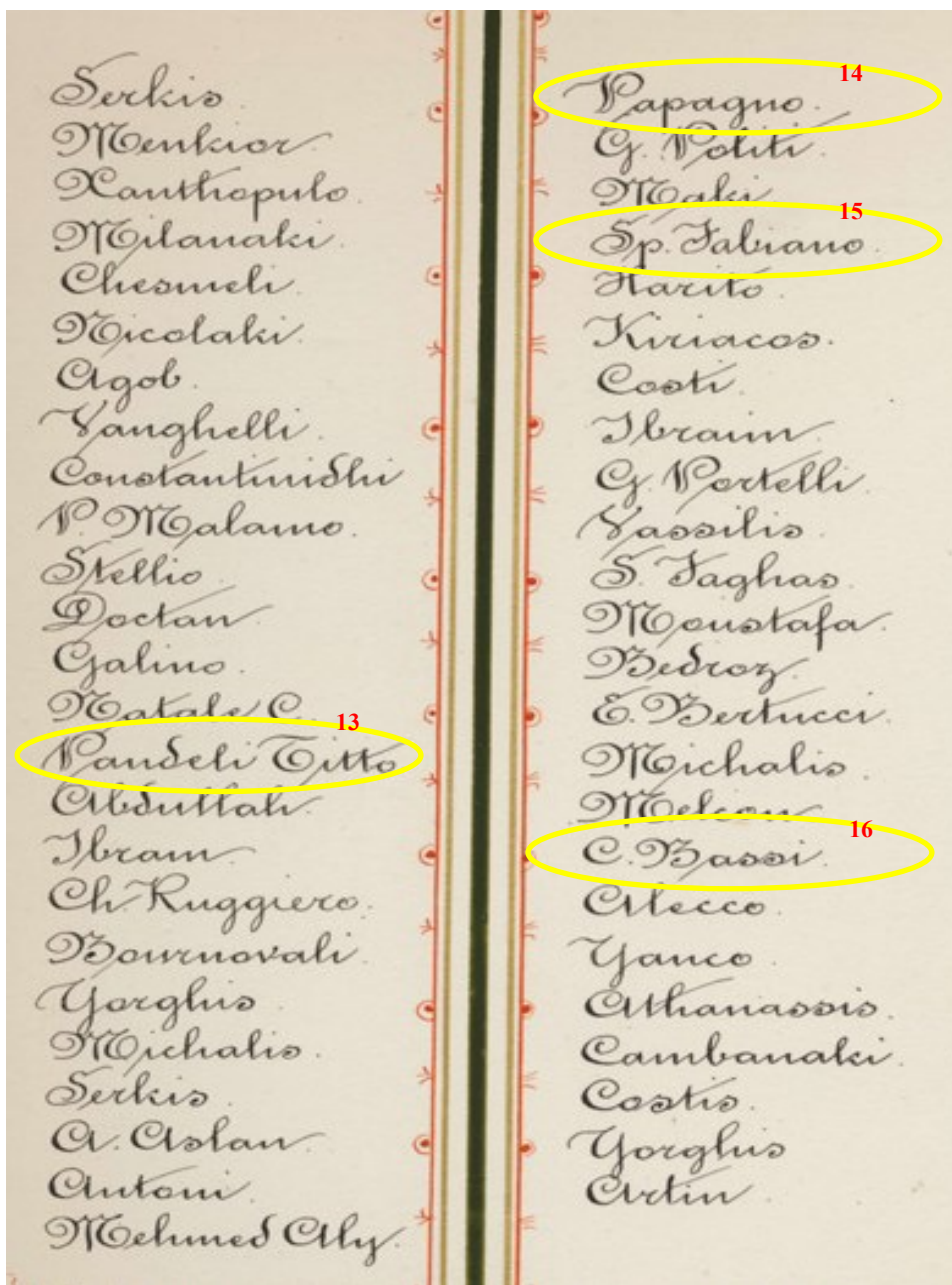 Serkis.
Menkior.
Xanthopulo.
Milanaki.
Chesmeli.
Nicolaki.
Agob.
Vanghelli.
Constantinidhi
P. Malamo.
Stellio.
Doctan.
Galino.
Natale C.
13
Pandeli Titto
Abdullah.
Ibram
Ch. Ruggiero.
Bournovali.
Yorghis.
Michalis.
Serkis.
A. Aslan
Antoni.
Mehmed Aly.
14
Papagno.
G. Politi.
Maki
15
Sp. Fabiano.
Harito.
Kiriacos.
Costi.
Ibraim.
G. Portelli.
Vassilis.
S. Faghas.
Moustafa.
Bedroz.
E. Bertucci.
Michalis.
Melcon
16
C. Bassi.
Alecco.
Yanco.
Athanassis.
Cambanaki.
Costis.
Yorghis
Artin.